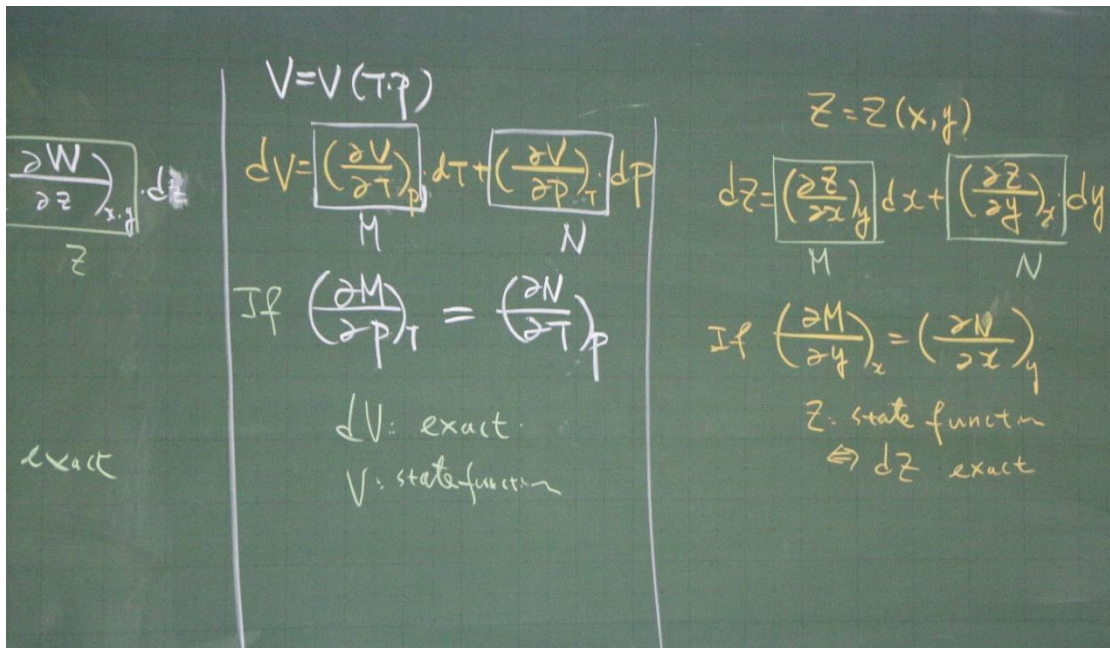 (∂W/∂z)x.y .dz
Z
exact
V=V(T.P)
dV=(∂V/∂T)P.dT+(∂V/∂P)T.dP
M N
If (∂M/∂P)T = (∂N/∂T)P
dV: exact.
V: state function
Z=Z(x,y)
dZ=(∂Z/∂x)y dx+(∂Z/∂y)x dy
M N
If (∂M/∂y)x=(∂N/∂x)y
Z: state function
⇔ dZ exact